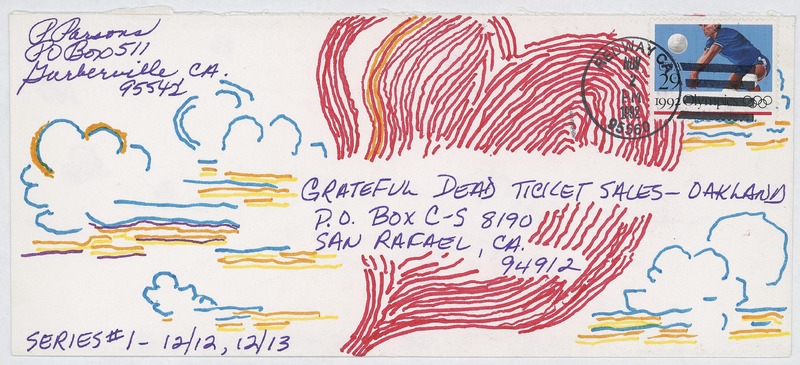 P. Parsons
PO Box 511
Garberville, CA.
95542
REDWAY CA
NOV
2
PM
1992
95560
29
1992 Olympics
GRATEFUL DEAD TICKET SALES – OAKLAND
P.O. BOX C-S 8190
SAN RAFAEL, CA.
94912
SERIES #1 - 12/12, 12/13